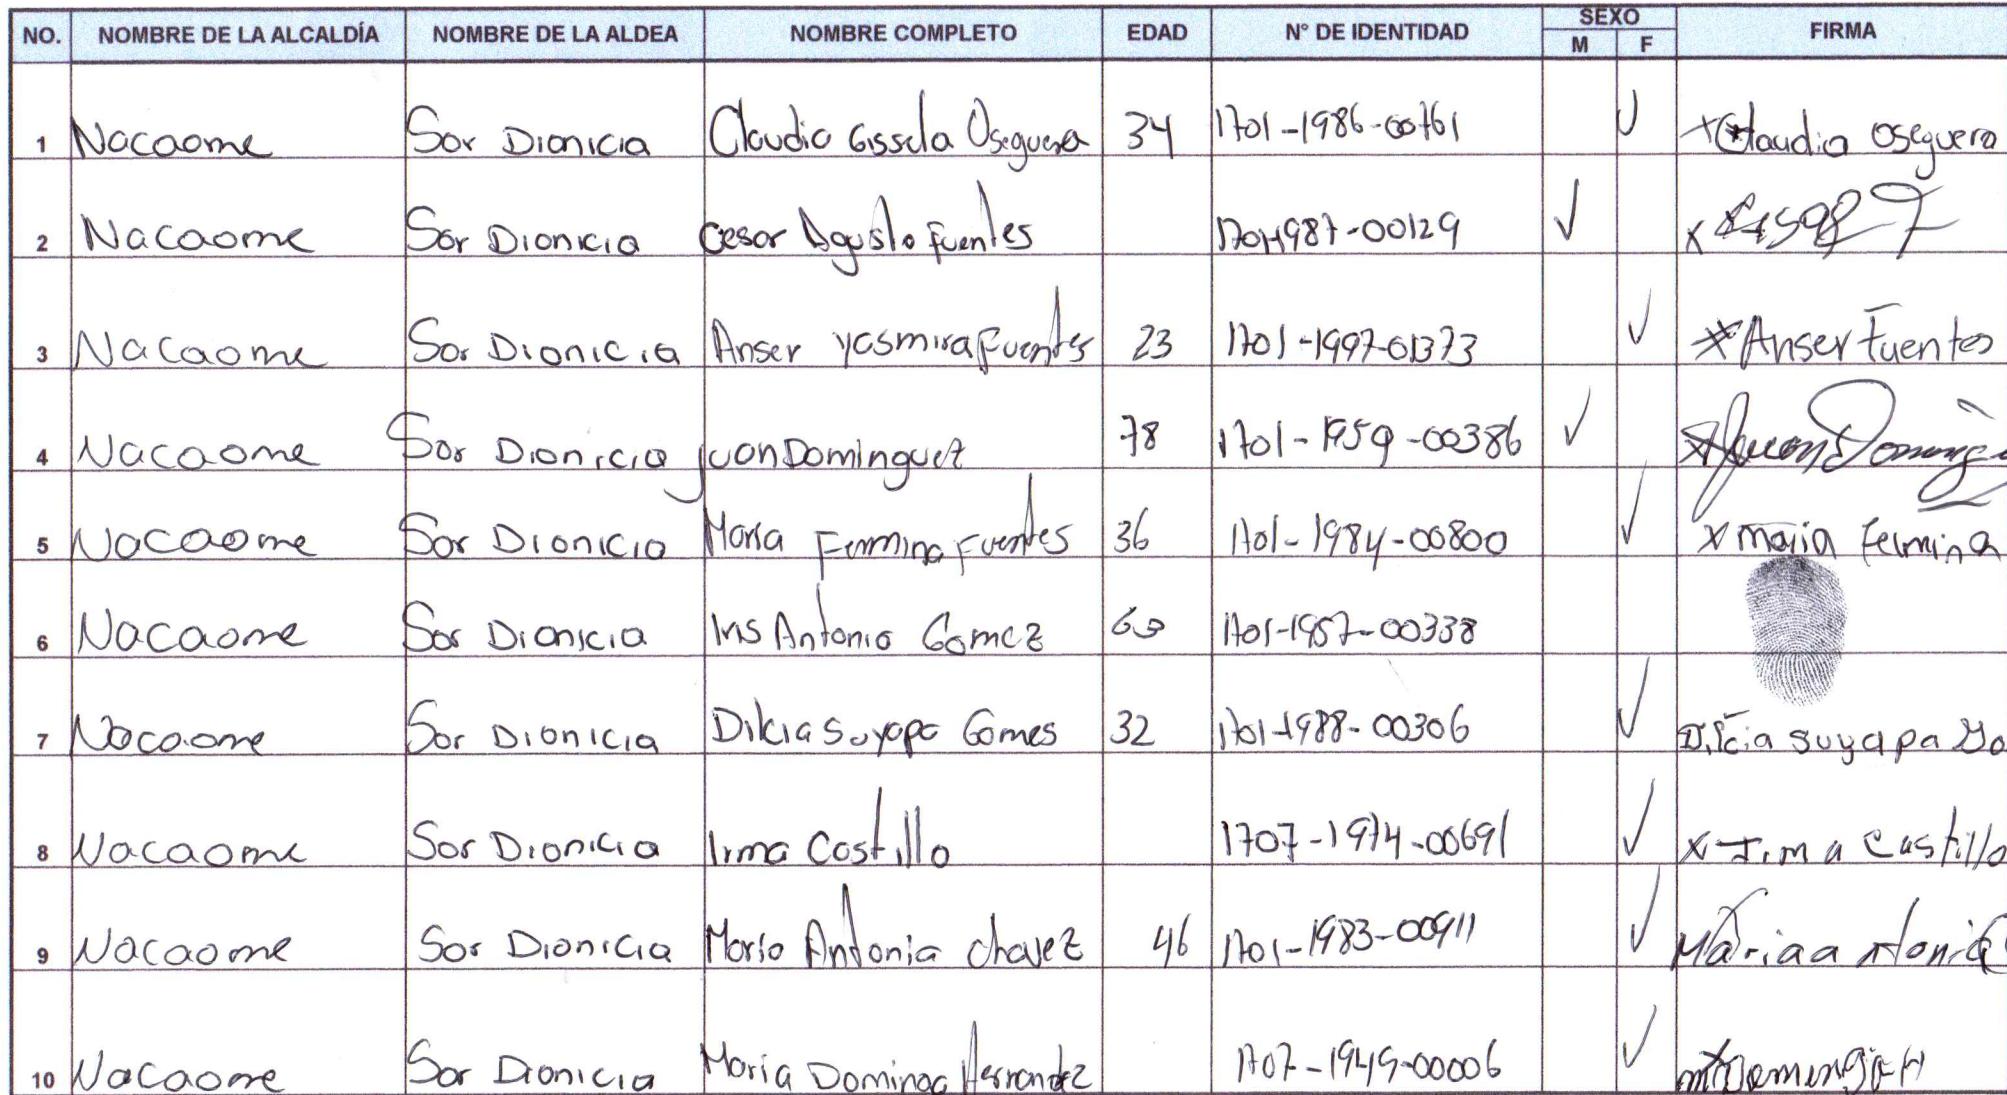 NO. NOMBRE DE LA ALCALDÍA NOMBRE DE LA ALDEA NOMBRE COMPLETO EDAD N° DE IDENTIDAD SEXO FIRMA
M F
1 Nacaome Sor Dionicia Claudia Gissela Oseguera 34 1701-1986-00761 ✓ x Claudia Oseguera
2 Nacaome Sor Dionicia Cesar Agusto Fuentes 1701-1987-00129 ✓ x
3 Nacaome Sor Dionicia Anser Yasmira Fuentes 23 1701-1997-01373 ✓ x Anser Fuentes
4 Nacaome Sor Dionicia Juan Dominguez 78 1701-1959-00386 ✓ x Juan Doming
5 Nacaome Sor Dionicia Maria Fermina Fuentes 36 1701-1984-00800 ✓ x maria fermina
6 Nacaome Sor Dionicia Iris Antonio Gomez 63 1701-1957-00338
7 Nacaome Sor Dionicia Dilcia Suyapa Gomes 32 1701-1988-00306 ✓ Dilcia suyapa Go
8 Nacaome Sor Dionicia Irma Castillo 1707-1974-00691 ✓ x Irma Castillo
9 Nacaome Sor Dionicia Maria Antonia Chavez 46 1701-1983-00911 ✓ Maria antonia
10 Nacaome Sor Dionicia Maria Dominga Hernandez 1707-1949-00006 ✓